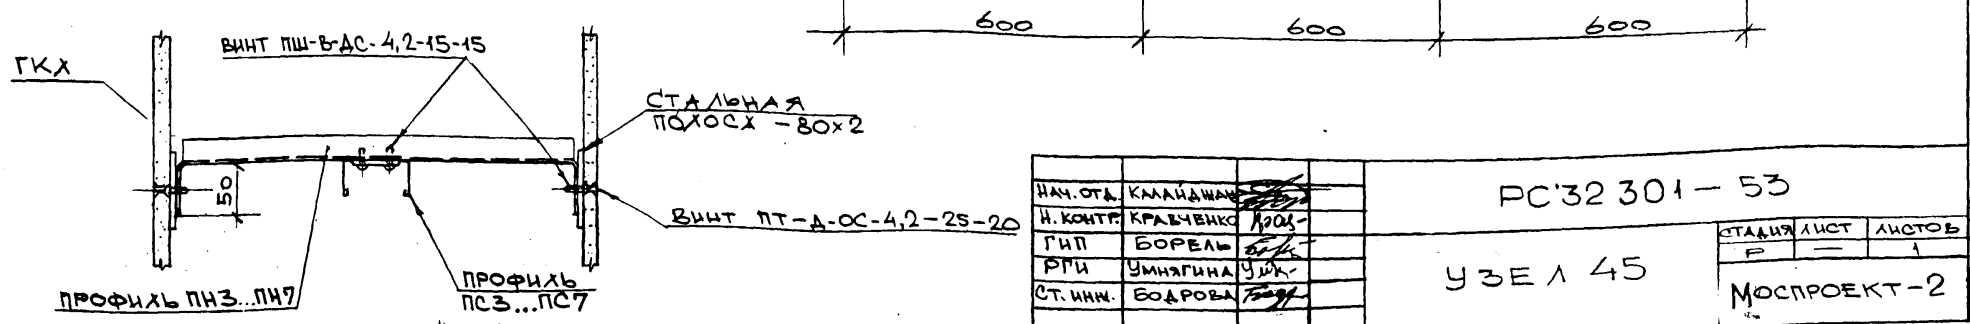 600
600
600
ВИНТ ПШ-В-ДС-4,2-15-15
ГКЛ
СТАЛЬНАЯ
ПОЛОСА -80×2
50
ВИНТ ПТ-Д-ОС-4,2-25-20
ПРОФИЛЬ ПН3...ПН7
ПРОФИЛЬ
ПС3...ПС7
РС'32 301 - 53
НАЧ. ОТД. КАЛАЙДЖАН
Н. КОНТР. КРАВЧЕНКО
ГИП БОРЕЛЬ
РГИ УМНЯГИНА
СТ. ИНЖ. БОДРОВА
УЗЕЛ 45
СТАДИЯ ЛИСТ ЛИСТОВ
Р — 1
МОСПРОЕКТ-2